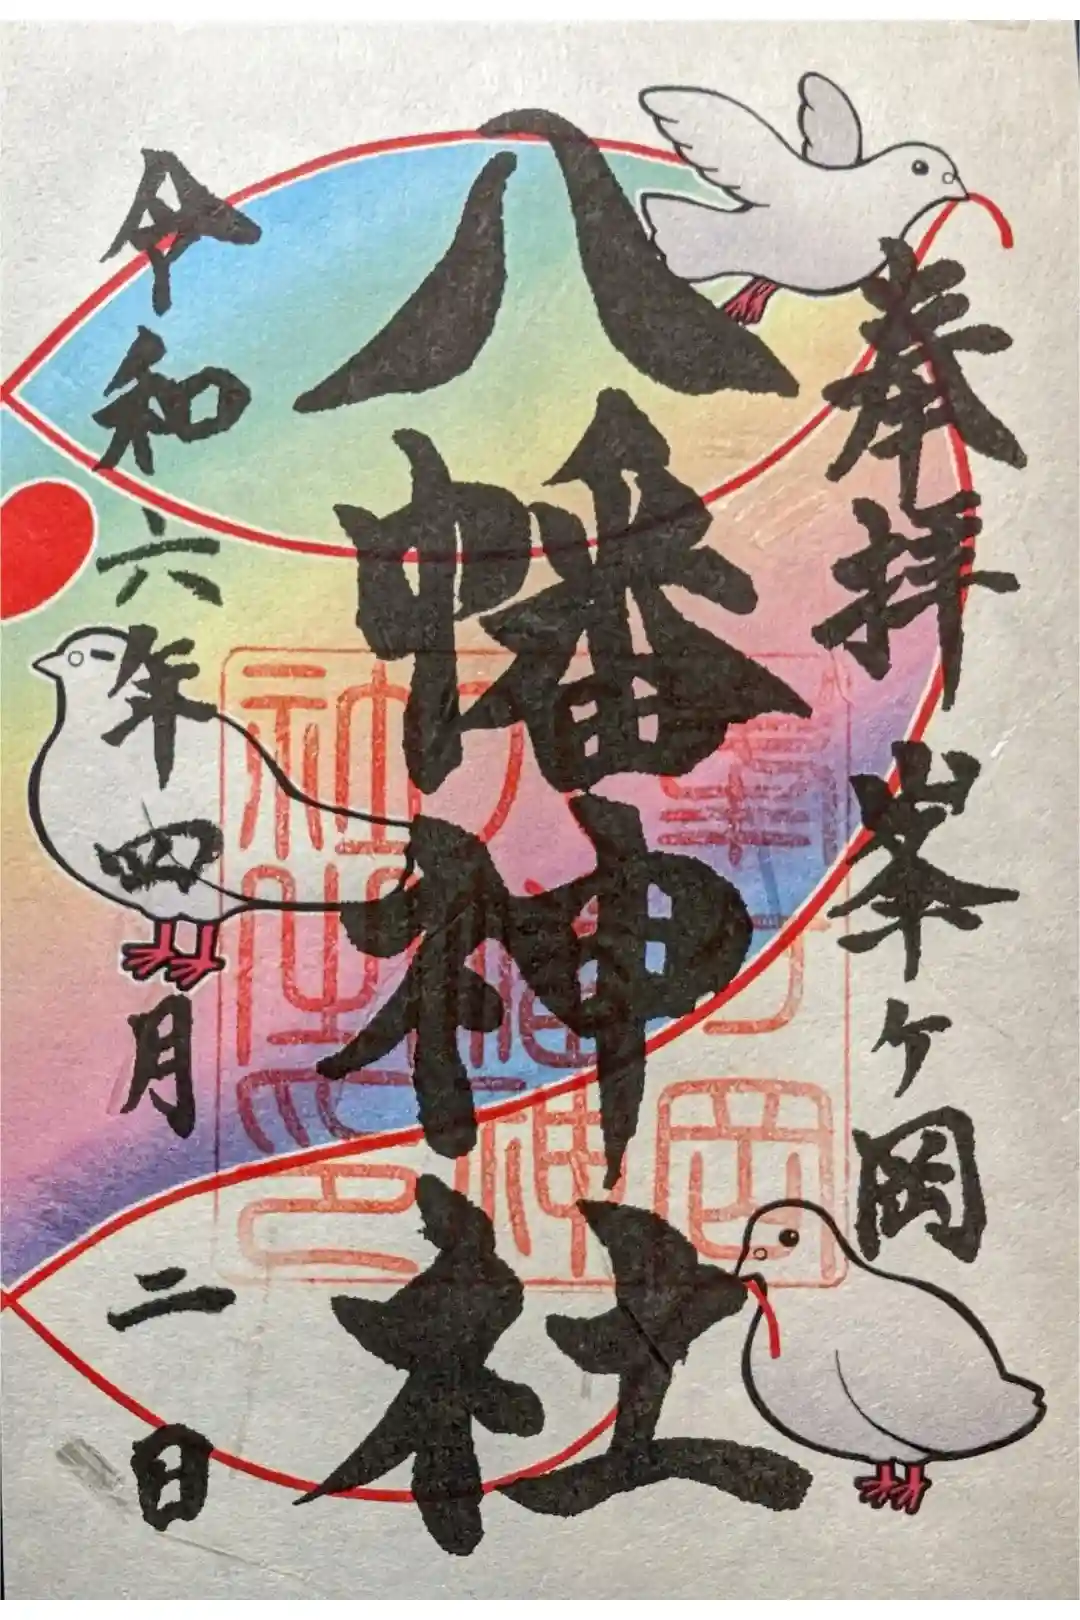 奉拝 峯ヶ岡
八幡神社
令和六年四月二日
峯ヶ岡
八幡神
社之印